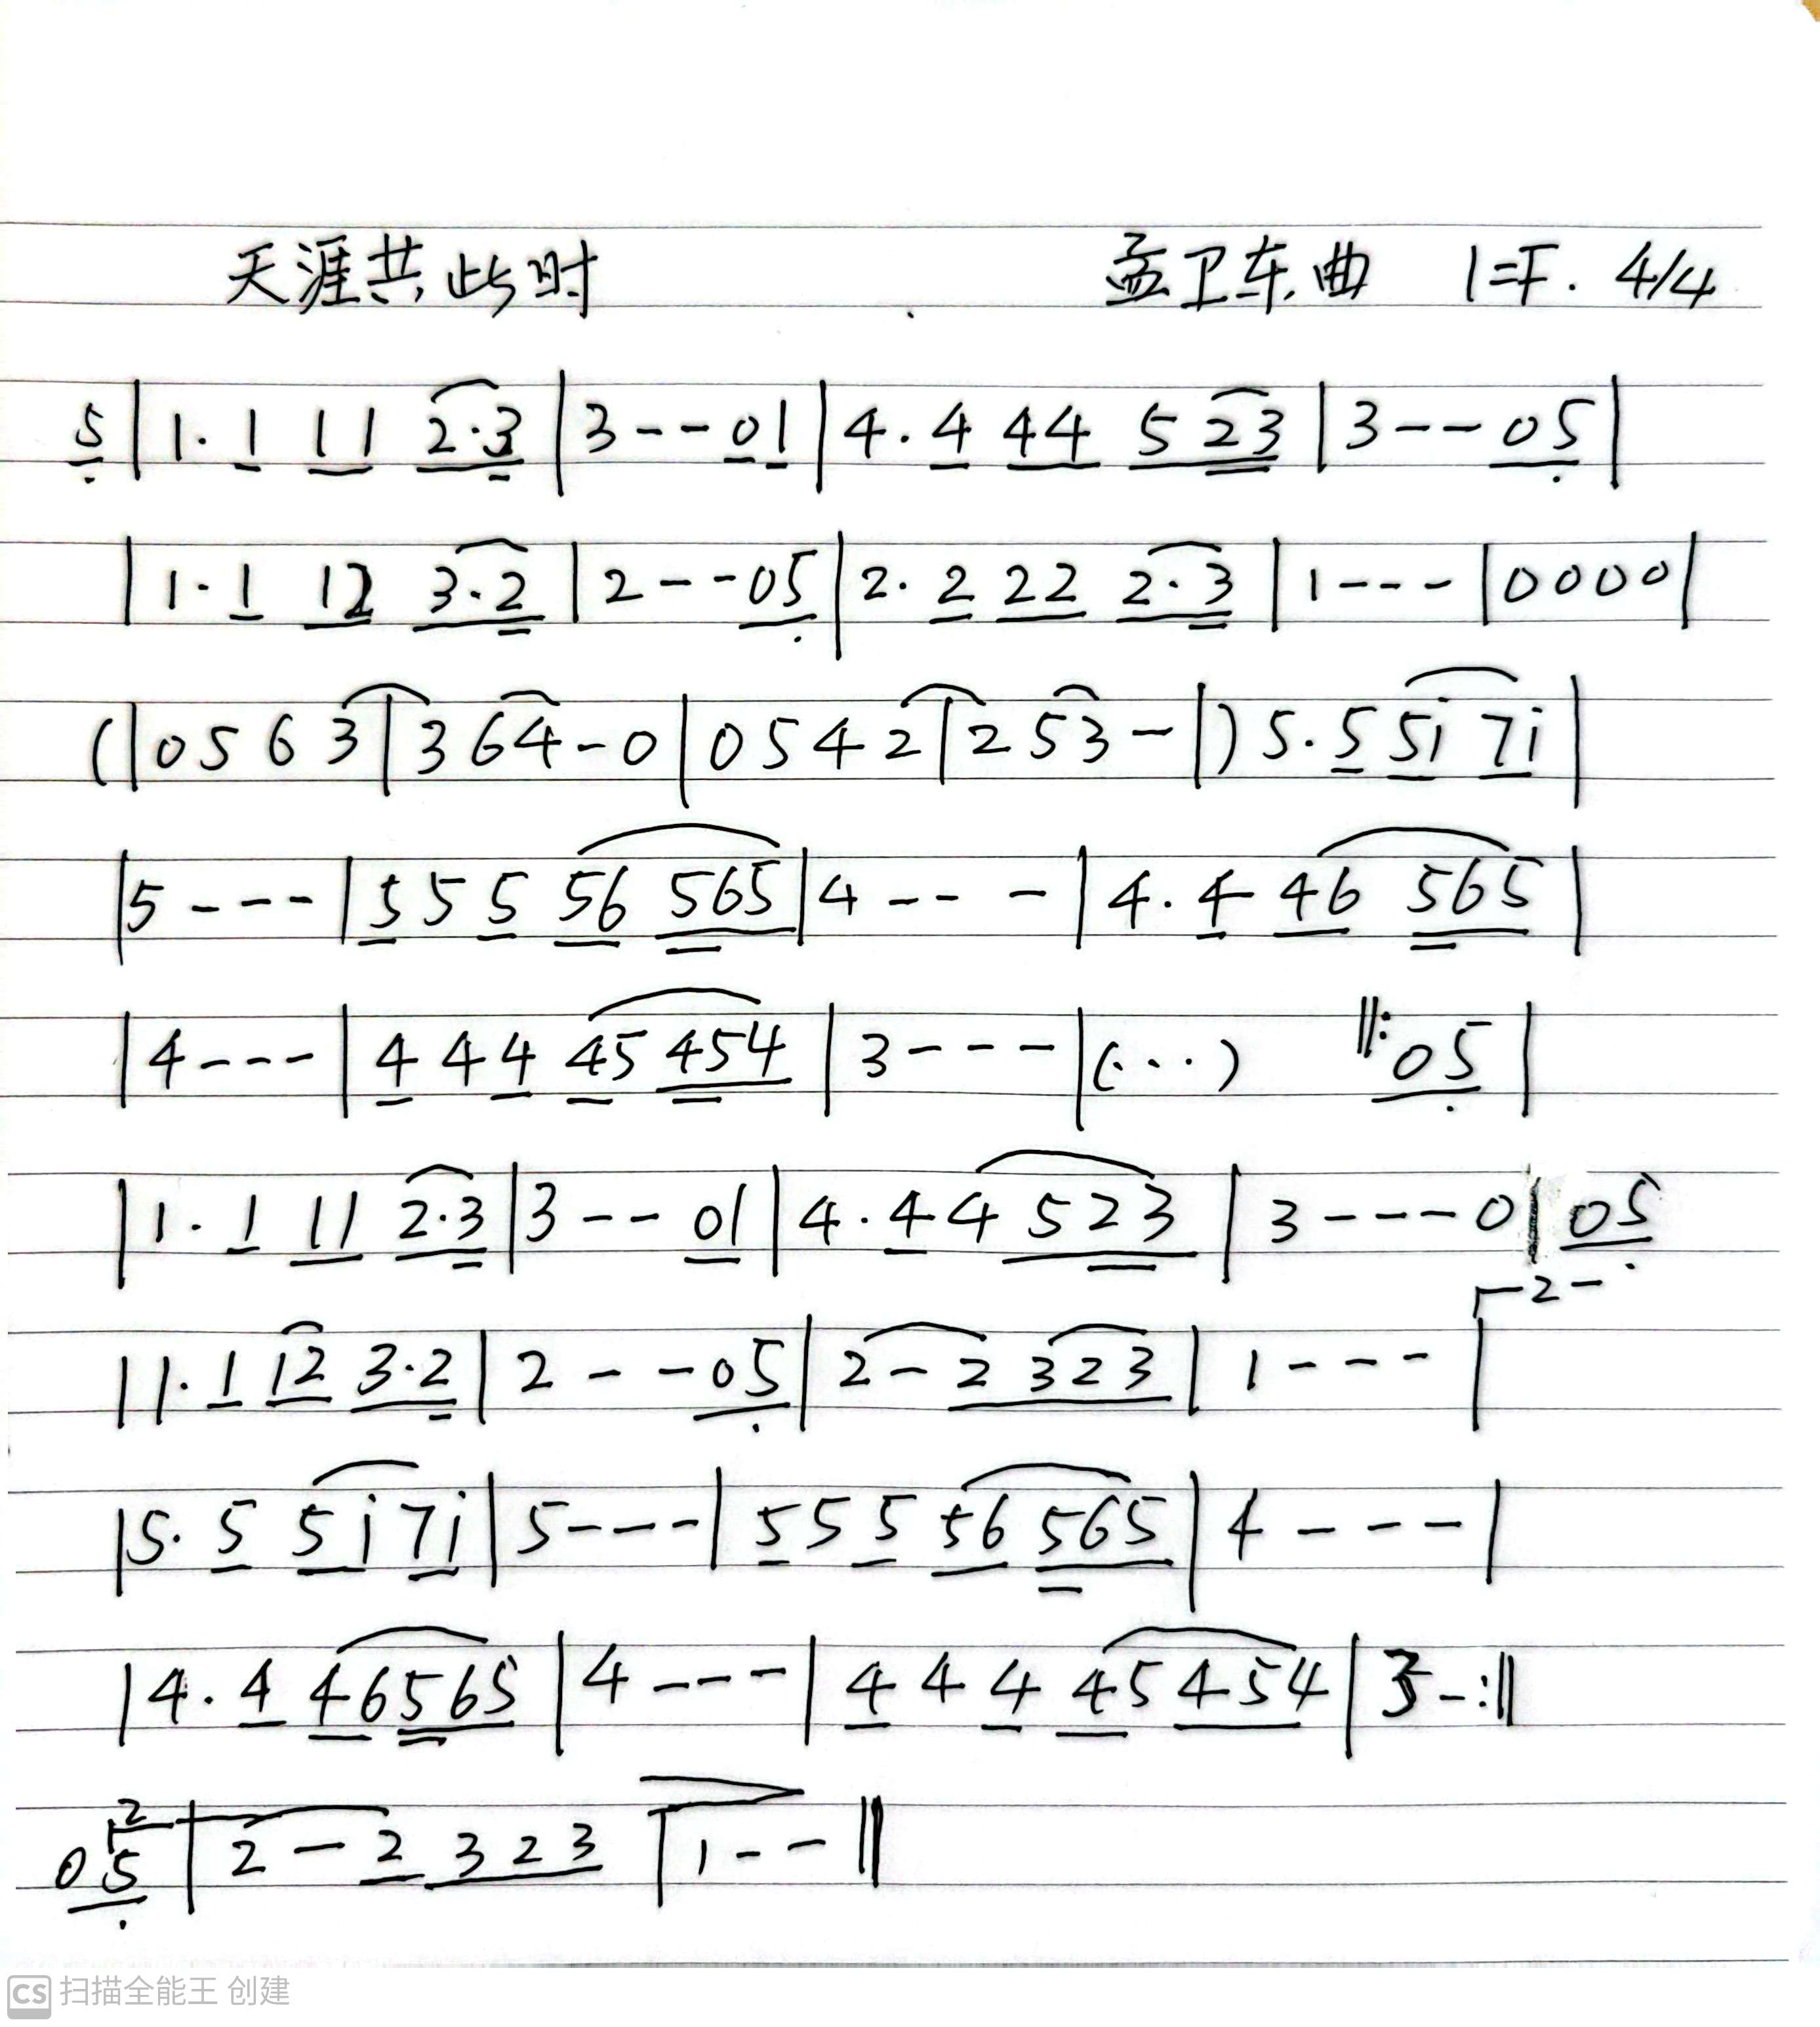 天涯共此时 孟卫东曲 1=F. 4/4
5̣ | 1. 1 11 2.3 | 3 - - 01 | 4. 4 44 5 23 | 3 - - 05̣ |
| 1. 1 12 3.2 | 2 - - 05̣ | 2. 2 22 2.3 | 1 - - - | 0 0 0 0 |
( | 0 5 6 3 | 3 64 - 0 | 0 5 4 2 | 2 53 - | ) 5. 5 5i 7i |
| 5 - - - | 5 5 5 56 565 | 4 - - - | 4. 4 46 565 |
| 4 - - - | 4 4 4 45 454 | 3 - - - | (...) ‖: 05̣ |
| 1. 1 11 2.3 | 3 - - 01 | 4. 4 4 523 | 3 - - - 0 | 05̣
| 1. 1 12 3.2 | 2 - - 05̣ | 2 - 2 323 | 1 - - - | 2 -
| 5. 5 5i 7i | 5 - - - | 5 5 5 56 565 | 4 - - - |
| 4. 4 46 565 | 4 - - - | 4 4 4 45 454 | 3 - :‖
2
05̣ | 2 - 2 323 | 1 - - ‖
CS 扫描全能王 创建